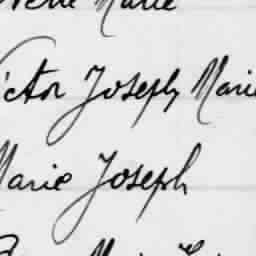 Marie
Victor Joseph Marie
Marie Joseph